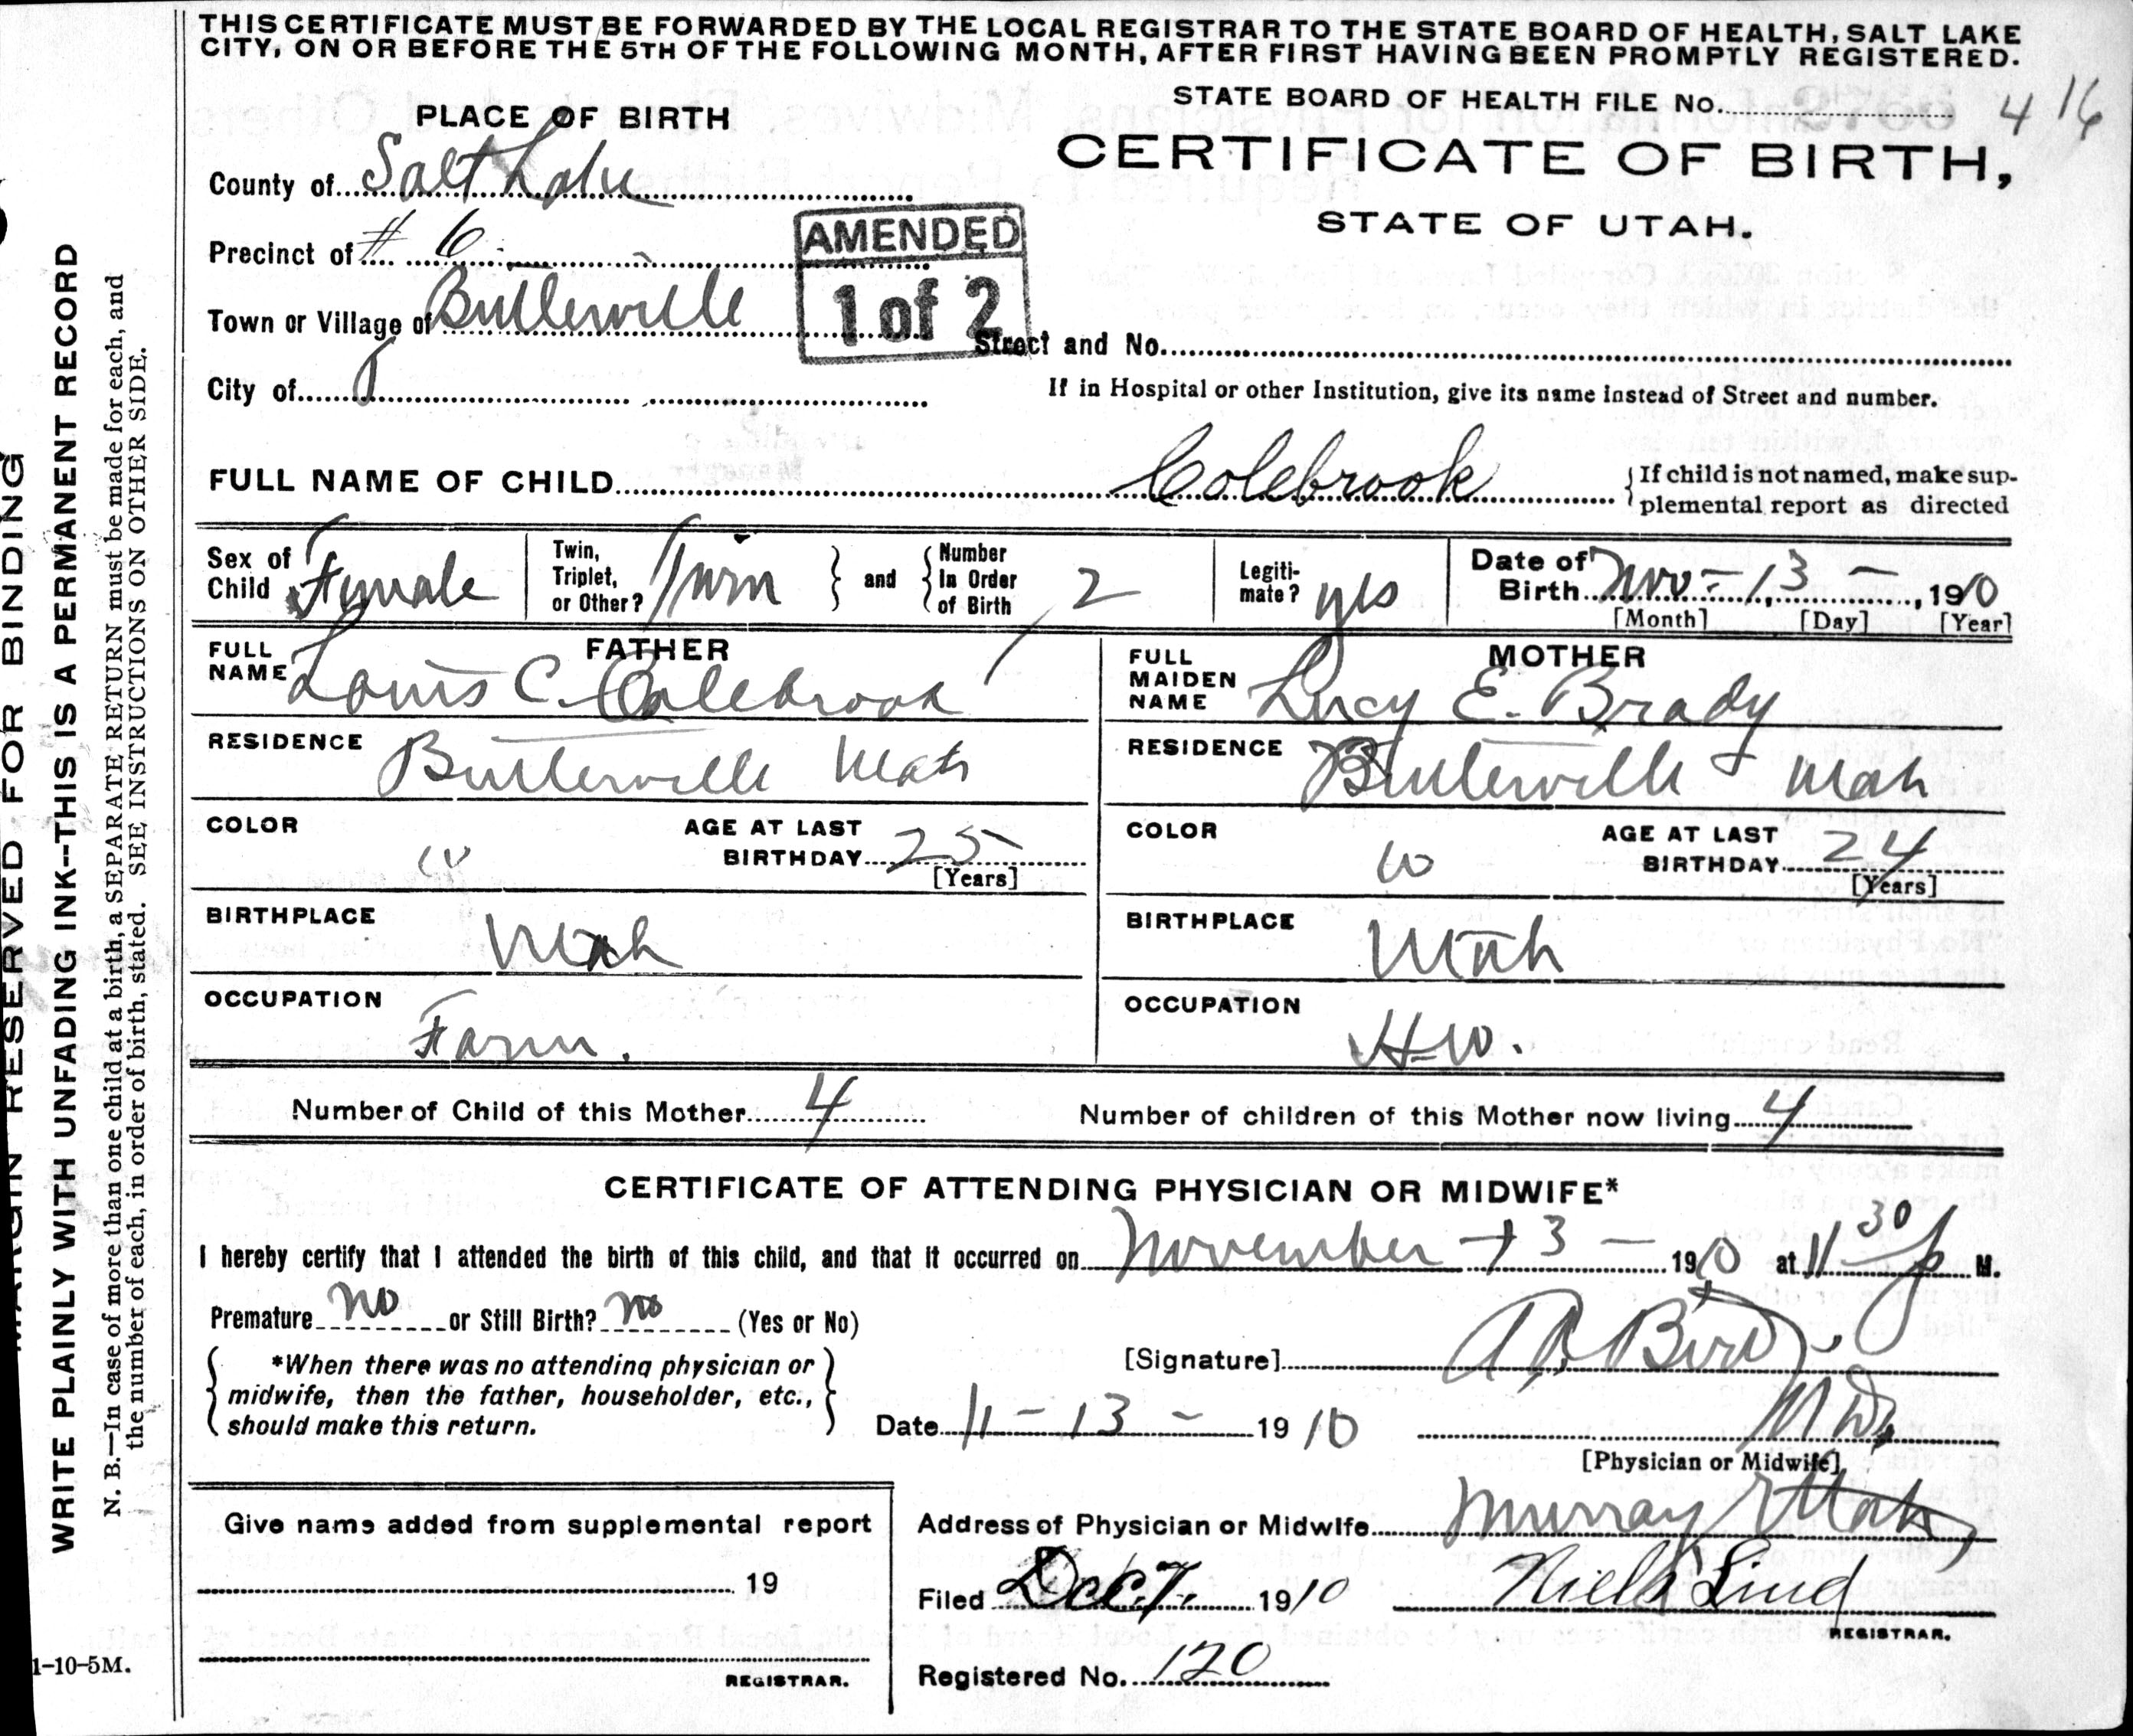 THIS CERTIFICATE MUST BE FORWARDED BY THE LOCAL REGISTRAR TO THE STATE BOARD OF HEALTH, SALT LAKE
CITY, ON OR BEFORE THE 5TH OF THE FOLLOWING MONTH, AFTER FIRST HAVING BEEN PROMPTLY REGISTERED.
STATE BOARD OF HEALTH FILE No. 416
PLACE OF BIRTH
CERTIFICATE OF BIRTH,
STATE OF UTAH.
County of Salt Lake
Precinct of # 6
AMENDED
1 of 2
Town or Village of Butlerville
Street and No.
City of
If in Hospital or other Institution, give its name instead of Street and number.
FULL NAME OF CHILD Colebrook {If child is not named, make sup-
plemental report as directed
Sex of Child Female
Twin, Triplet, or Other? Twin } and { Number In Order of Birth 2
Legiti-mate? yes
Date of Birth Nov - 13 - , 1910
[Month] [Day] [Year]
FATHER
FULL NAME Louis C. Colebrook
MOTHER
FULL MAIDEN NAME Lucy E. Brady
RESIDENCE Butlerville Utah
RESIDENCE Butlerville Utah
COLOR W AGE AT LAST BIRTHDAY 25 [Years]
COLOR W AGE AT LAST BIRTHDAY 24 [Years]
BIRTHPLACE Utah
BIRTHPLACE Utah
OCCUPATION Farm.
OCCUPATION H.W.
Number of Child of this Mother 4 Number of children of this Mother now living 4
CERTIFICATE OF ATTENDING PHYSICIAN OR MIDWIFE*
I hereby certify that I attended the birth of this child, and that it occurred on November 13 - 1910 at 11 30 p M.
Premature no or Still Birth? no (Yes or No)
*When there was no attending physician or
midwife, then the father, householder, etc.,
should make this return.
[Signature] Bird.
Date 11 - 13 - 1910 M D.
[Physician or Midwife]
Give name added from supplemental report
19
REGISTRAR.
Address of Physician or Midwife Murray Utah
Filed Dec 7. 1910 Niels Lind
REGISTRAR.
Registered No. 120
1-10-5M.
MARGIN RESERVED FOR BINDING
WRITE PLAINLY WITH UNFADING INK--THIS IS A PERMANENT RECORD
N. B.—In case of more than one child at a birth, a SEPARATE RETURN must be made for each, and
the number of each, in order of birth, stated. SEE INSTRUCTIONS ON OTHER SIDE.